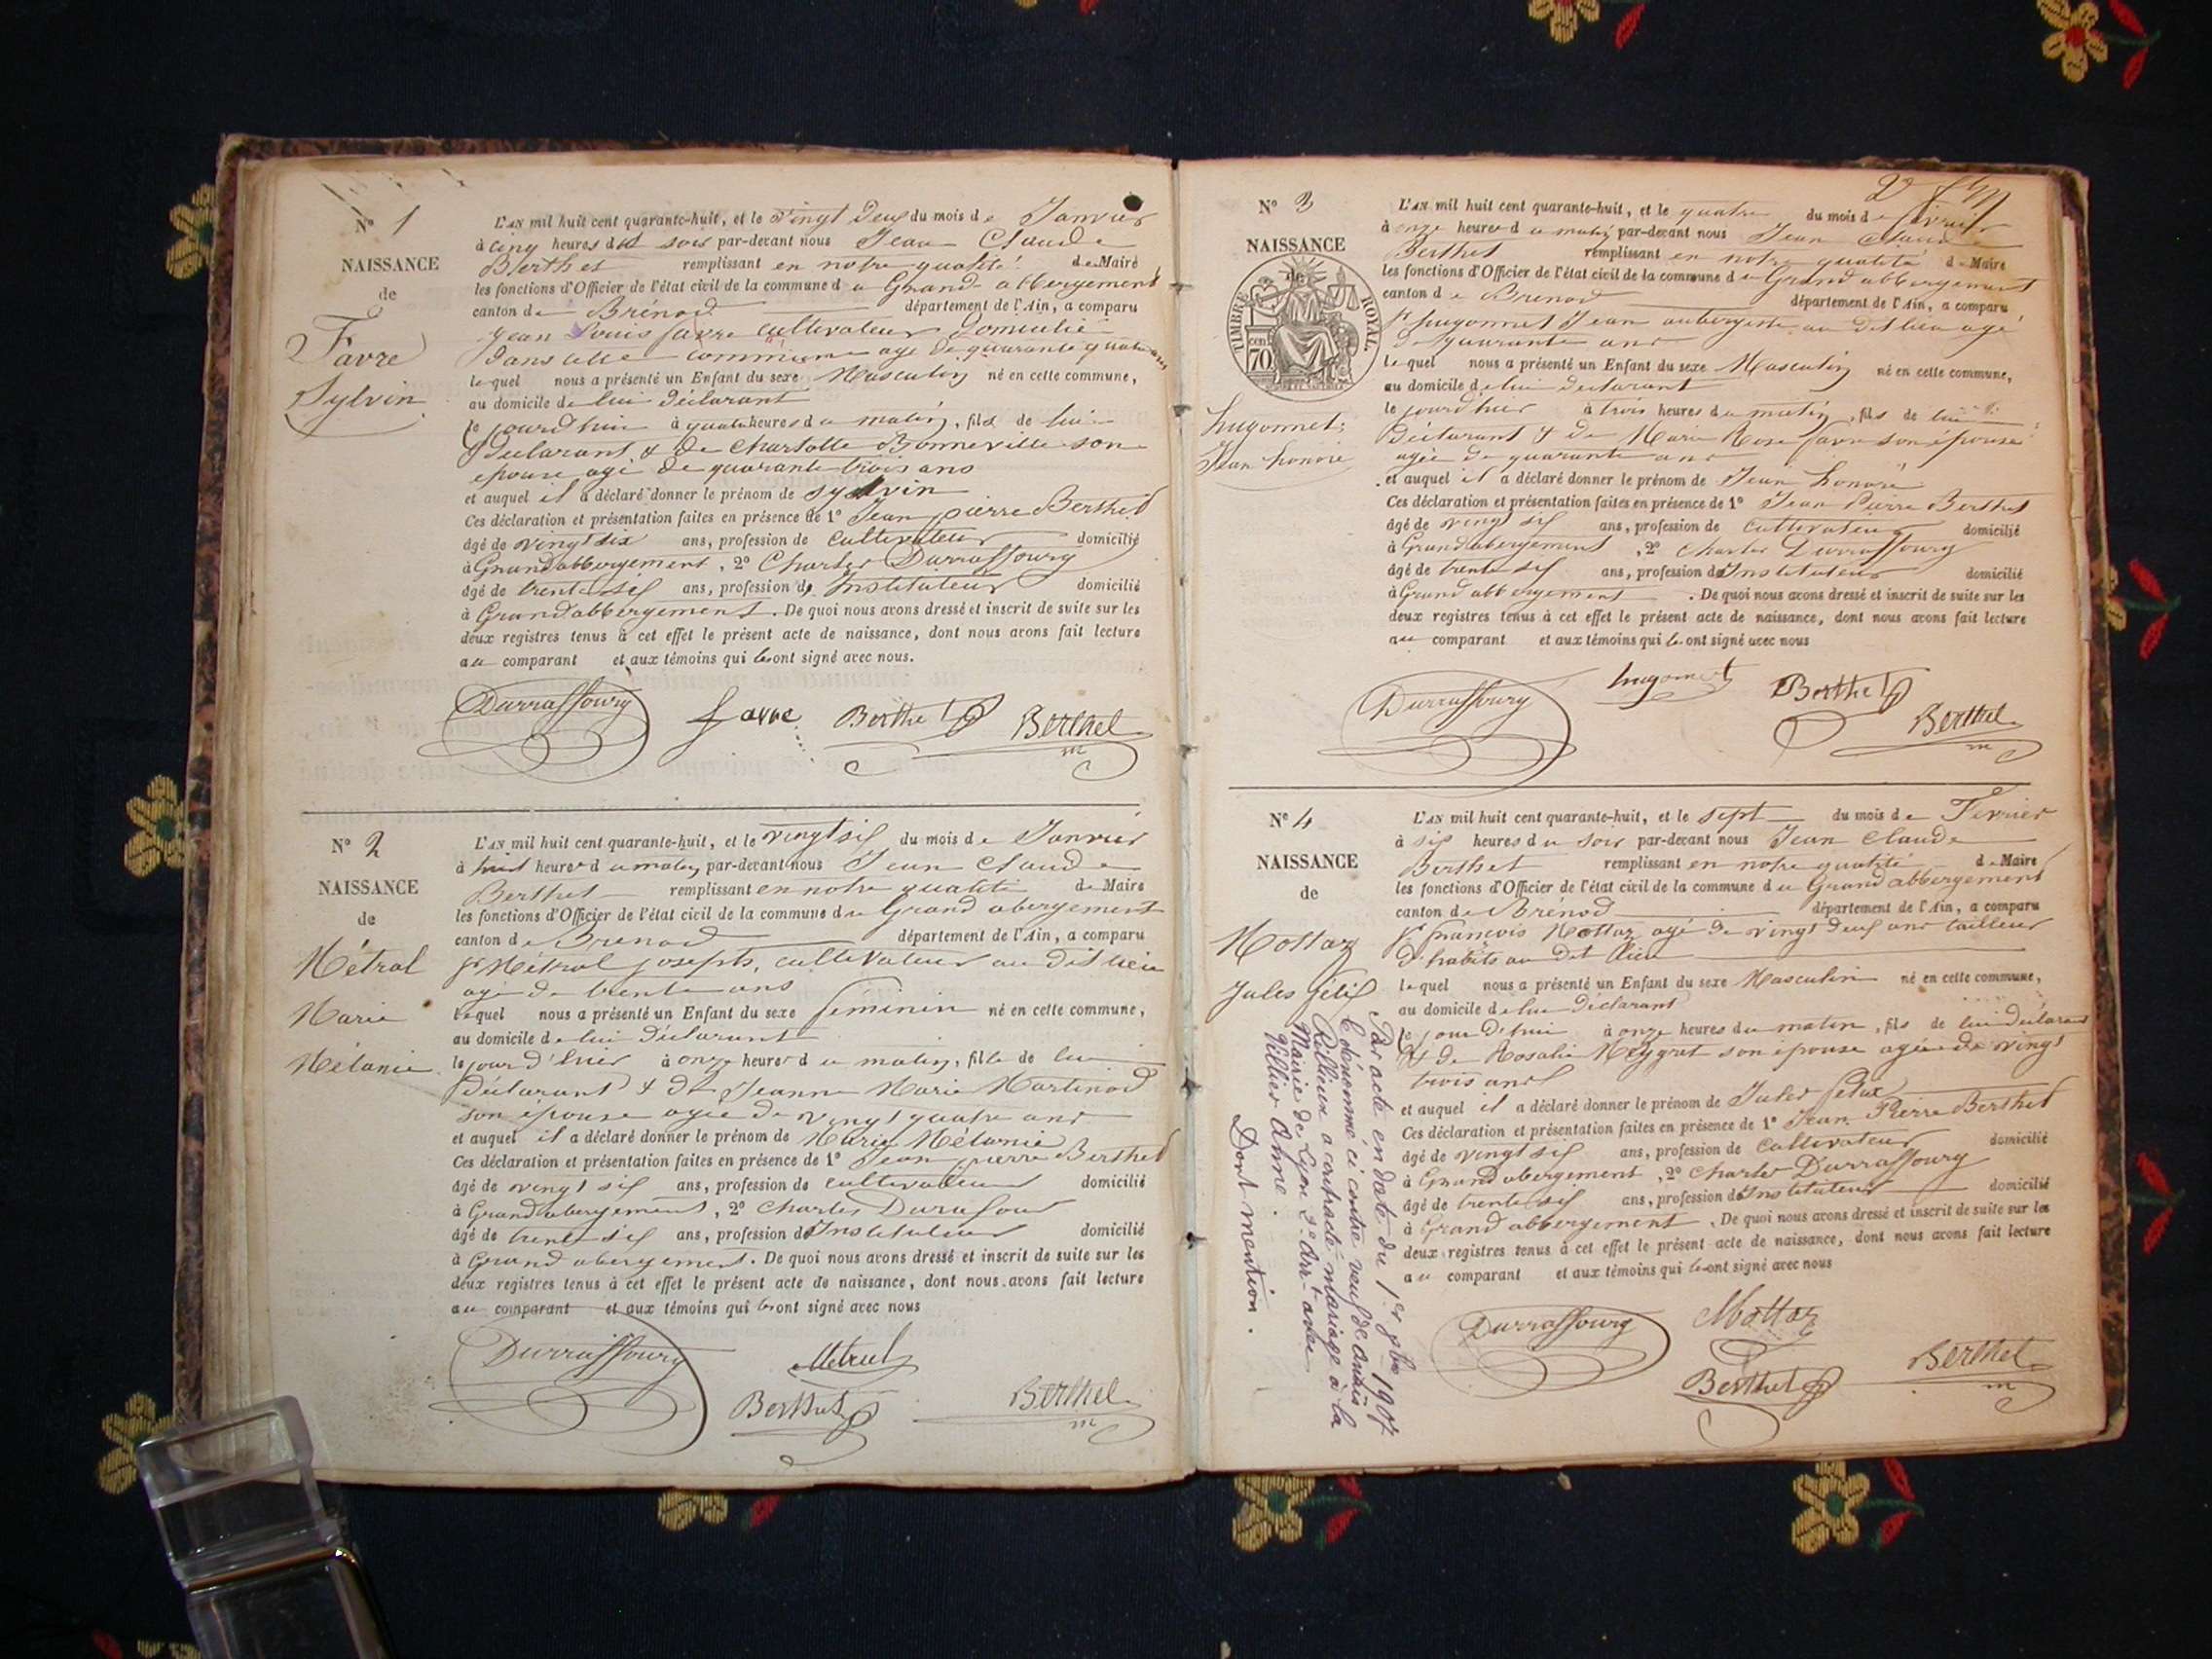 N° 1
NAISSANCE
de
Favre
Sylvin
L'AN mil huit cent quarante-huit, et le vingt deux du mois de Janvier
à cinq heures du soir par-devant nous Jean Claude
Berthet remplissant en notre qualité de Maire
les fonctions d'Officier de l'état civil de la commune du Grand abbergement
canton de Brénod département de l'Ain, a comparu
Jean Louis favre cultivateur domicilié
dans cette commune agé de quarante quatre ans
lequel nous a présenté un Enfant du sexe Masculin né en cette commune,
au domicile de lui déclarant
le jourd'hui à quatre heures du matin, fils de lui
déclarant & de Charlotte Bonneville son
epouse agé de quarante trois ans
et auquel il a déclaré donner le prénom de sylvin
Ces déclaration et présentation faites en présence de 1° Jean pierre Berthet
âgé de vingt six ans, profession de cultivateur domicilié
à Grand abbergement, 2° Charles Durraffourg
âgé de trente six ans, profession d'Instituteur domicilié
à Grand abbergement. De quoi nous avons dressé et inscrit de suite sur les
deux registres tenus à cet effet le présent acte de naissance, dont nous avons fait lecture
au comparant et aux témoins qui les ont signé avec nous.
Durraffourg favre Berthet Berthet
m
N° 2
NAISSANCE
de
Métral
Marie
Mélanie
L'AN mil huit cent quarante-huit, et le vingt six du mois de Janvier
à huit heures du matin par-devant nous Jean Claude
Berthet remplissant en notre qualité de Maire
les fonctions d'Officier de l'état civil de la commune du Grand abergement
canton de Brenod département de l'Ain, a comparu
Sr Métral joseph, cultivateur au dit lieu
agé de trente ans
lequel nous a présenté un Enfant du sexe feminin né en cette commune,
au domicile de lui déclarant
le jour d'hier à onze heures du matin, fille de lui
déclarant & de Jeanne Marie Martinod
son épouse agée de vingt quatre ans
et auquel il a déclaré donner le prénom de Marie Mélanie
Ces déclaration et présentation faites en présence de 1° Jean pierre Berthet
âgé de vingt six ans, profession de cultivateur domicilié
à Grand abergement, 2° Charles Durafour
âgé de trente six ans, profession d'Instituteur domicilié
à Grand abergement. De quoi nous avons dressé et inscrit de suite sur les
deux registres tenus à cet effet le présent acte de naissance, dont nous avons fait lecture
au comparant et aux témoins qui les ont signé avec nous
Durraffourg Métral
Berthet Berthet
m
N° 3
NAISSANCE
de
TIMBRE ROYAL
70
hugonnet
Jean honoré
L'AN mil huit cent quarante-huit, et le quatre du mois de fevrier
à onze heures du matin par-devant nous Jean Claude
Berthet remplissant en notre qualité de Maire
les fonctions d'Officier de l'état civil de la commune du Grand abbergement
canton de Brenod département de l'Ain, a comparu
Sr hugonnet Jean aubergiste au dit lieu agé
de quarante ans
lequel nous a présenté un Enfant du sexe Masculin né en cette commune,
au domicile de lui déclarant
le jourd'hier à trois heures du matin, fils de lui
Déclarant & de Marie Rose favre son épouse
agée de quarante ans
et auquel il a déclaré donner le prénom de Jean honoré
Ces déclaration et présentation faites en présence de 1° Jean Pierre Berthet
âgé de vingt six ans, profession de cultivateur domicilié
à Grand abergement, 2° Charles Durraffourg
âgé de trente six ans, profession d'Instituteur domicilié
à Grand abbergement. De quoi nous avons dressé et inscrit de suite sur les
deux registres tenus à cet effet le présent acte de naissance, dont nous avons fait lecture
au comparant et aux témoins qui les ont signé avec nous
Durraffourg hugonnet Berthet
Berthet
m
N° 4
NAISSANCE
de
Mottaz
Jules félix
L'AN mil huit cent quarante-huit, et le sept du mois de Fevrier
à six heures du soir par-devant nous Jean Claude
Berthet remplissant en notre qualité de Maire
les fonctions d'Officier de l'état civil de la commune du Grand abbergement
canton de Brénod département de l'Ain, a comparu
Sr françois Mottaz agé de vingt deux ans tailleur
d'habits au dit lieu
lequel nous a présenté un Enfant du sexe Masculin né en cette commune,
au domicile de lui Déclarant
le jour d'hui à onze heures du matin, fils de lui déclarant
& de Rosalie Meygret son épouse agée de vingt
trois ans
et auquel il a déclaré donner le prénom de Jules felix
Ces déclaration et présentation faites en présence de 1° Jean Pierre Berthet
âgé de vingt six ans, profession de cultivateur domicilié
à Grand abergement, 2° Charles Durraffourg
âgé de trente six ans, profession d'Instituteur domicilié
à Grand abbergement. De quoi nous avons dressé et inscrit de suite sur les
deux registres tenus à cet effet le présent acte de naissance, dont nous avons fait lecture
au comparant et aux témoins qui les ont signé avec nous
Durraffourg Mottaz
Berthet Berthet
m
Par acte en date du 1er 1907
le dénommé ci contre veuf de
a contracté mariage à la
Mairie de Lyon 2e Arrt avec
Villier Anne.
Dont mention.